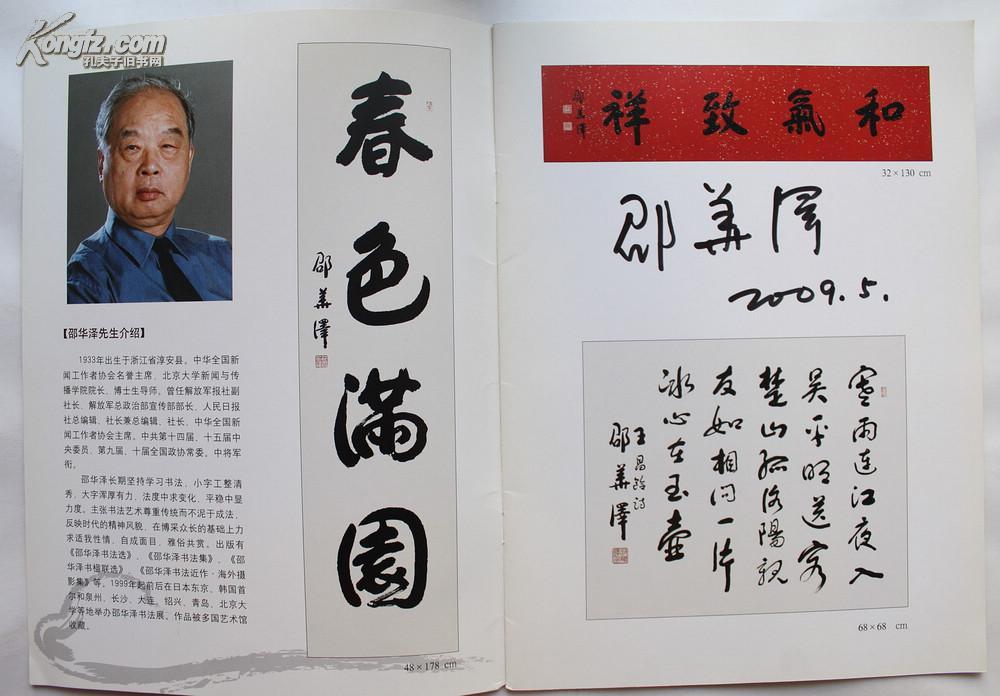 Kongfz.com
孔夫子旧书网
【邵华泽先生介绍】
1933年出生于浙江省淳安县。中华全国新
闻工作者协会名誉主席、北京大学新闻与传
播学院院长、博士生导师。曾任解放军报社副
社长、解放军总政治部宣传部部长、人民日报
社总编辑、社长兼总编辑、社长、中华全国新
闻工作者协会主席。中共第十四届、十五届中
央委员、第九届、十届全国政协常委。中将军
衔。
邵华泽长期坚持学习书法，小字工整清
秀、大字浑厚有力，法度中求变化，平稳中显
力度。主张书法艺术尊重传统而不泥于成法，
反映时代的精神风貌，在博采众长的基础上力
求适我性情、自成面目、雅俗共赏。出版有
《邵华泽书法选》、《邵华泽书法集》、《邵
华泽书楹联选》、《邵华泽书法近作·海外摄
影集》等。1999年起前后在日本东京、韩国首
尔和泉州、长沙、大连、绍兴、青岛、北京大
学等地举办邵华泽书法展。作品被多国艺术馆
收藏。
春色滿園
邵華澤
48×178 cm
和氣致祥
邵華澤
32×130 cm
邵華澤
2009.5.
寒雨连江夜入
吴平明送客
楚山孤洛陽親
友如相问一片
冰心在玉壶
王昌龄诗
邵華澤
68×68 cm